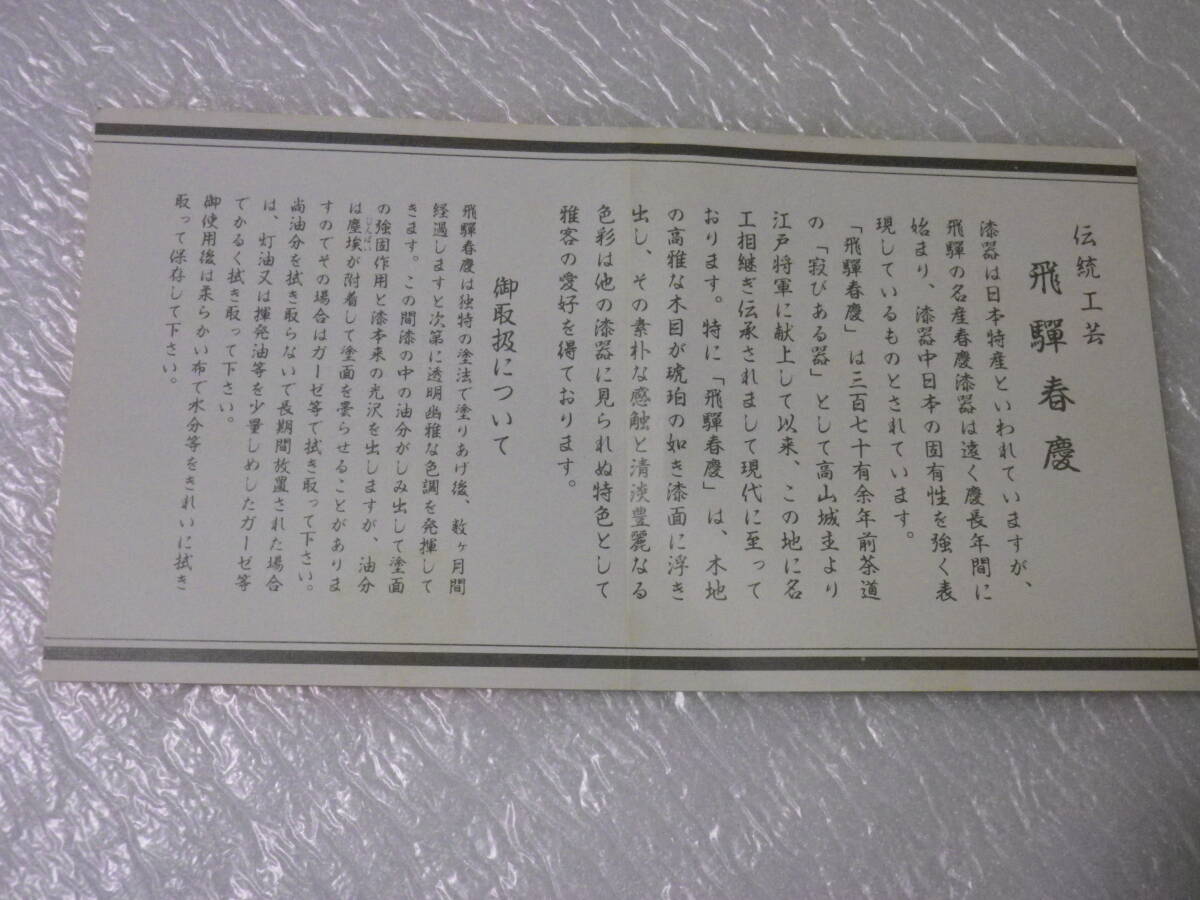 伝統工芸
飛驒春慶
漆器は日本特産といわれていますが、
飛驒の名産春慶漆器は遠く慶長年間に
始まり、漆器中日本の固有性を強く表
現しているものとされています。
「飛驒春慶」は三百七十有余年前茶道
の「寂びある器」として高山城主より
江戸将軍に献上して以来、この地に名
工相継ぎ伝承されまして現代に至って
おります。特に「飛驒春慶」は、木地
の高雅な木目が琥珀の如き漆面に浮き
出し、その素朴な感触と清淡豊麗なる
色彩は他の漆器に見られぬ特色として
雅客の愛好を得ております。
御取扱について
飛驒春慶は独特の塗法で塗りあげ後、数ヶ月間
経過しますと次第に透明幽雅な色調を発揮して
きます。この間漆の中の油分がしみ出して塗面
の強固作用と漆本来の光沢を出しますが、油分
は塵埃(じんぱい)が附着して塗面を曇らせることがありま
すのでその場合はガーゼ等で拭き取って下さい。
尚油分を拭き取らないで長期間放置された場合
は、灯油又は揮発油等を少量しめしたガーゼ等
でかるく拭き取って下さい。
御使用後は柔らかい布で水分等をきれいに拭き
取って保存して下さい。